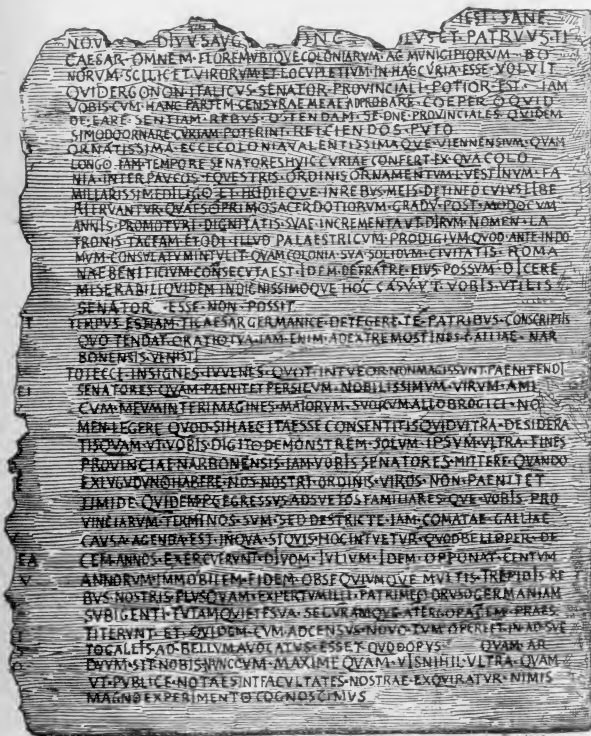 EST SANE
NOVO DIVVS AVG VS ET PATRVVS TI
CAESAR OMNEM FLOREM VBIQVE COLONIARVM AC MVNICIPIORVM BO
NORVM SCILICET VIRORVM ET LOCVPLETIVM IN HAC CVRIA ESSE VOLVIT
QVID ERGO NON ITALICVS SENATOR PROVINCIALI POTIOR EST IAM
VOBIS CVM HANC PARTEM CENSVRAE MEAE ADPROBARE COEPERO QVID
DE EA RE SENTIAM REBVS OSTENDAM SED NE PROVINCIALES QVIDEM
SI MODO ORNARE CVRIAM POTERINT REICIENDOS PVTO
ORNATISSIMA ECCE COLONIA VALENTISSIMAQVE VIENNENSIVM QVAM
LONGO IAM TEMPORE SENATORES HVIC CVRIAE CONFERT EX QVA COLO
NIA INTER PAVCOS EQVESTRIS ORDINIS ORNAMENTVM L VESTINVM FA
MILIARISSIME DILIGO ET HODIEQVE IN REBVS MEIS DETINEO CVIVS LIBE
RI FRVANTVR QVAESO PRIMO SACERDOTIORVM GRADV POST MODO CVM
ANNIS PROMOTVRI DIGNITATIS SVAE INCREMENTA VT DIRVM NOMEN LA
TRONIS TACEAM ET ODI ILLVD PALAESTRICVM PRODIGIVM QVOD ANTE IN DO
MVM CONSVLATVM INTVLIT QVAM COLONIA SVA SOLIDVM CIVITATIS ROMA
NAE BENIFICIVM CONSECVTA EST IDEM DE FRATRE EIVS POSSVM DICERE
MISERABILI QVIDEM INDIGNISSIMOQVE HOC CASV VT VOBIS VTILIS
SENATOR ESSE NON POSSIT
TEMPVS EST IAM TI CAESAR GERMANICE DETEGERE TE PATRIBVS CONSCRIPTIS
QVO TENDAT ORATIO TVA IAM ENIM AD EXTREMOS FINES GALLIAE NAR
BONENSIS VENISTI
TOT ECCE INSIGNES IVVENES QVOT INTVEOR NON MAGIS SVNT PAENITENDI
SENATORES QVAM PAENITET PERSICVM NOBILISSIMVM VIRVM AMI
CVM MEVM INTER IMAGINES MAIORVM SVORVM ALLOBROGICI NO
MEN LEGERE QVOD SI HAEC ITA ESSE CONSENTITIS QVID VLTRA DESIDERA
TIS QVAM VT VOBIS DIGITO DEMONSTREM SOLVM IPSVM VLTRA FINES
PROVINCIAE NARBONENSIS IAM VOBIS SENATORES MITTERE QVANDO
EX LVGVDVNO HABERE NOS NOSTRI ORDINIS VIROS NON PAENITET
TIMIDE QVIDEM P C EGRESSVS ADSVETOS FAMILIARESQVE VOBIS PRO
VINCIARVM TERMINOS SVM SED DESTRICTE IAM COMATAE GALLIAE
CAVSA AGENDA EST IN QVA SI QVIS HOC INTVETVR QVOD BELLO PER DE
CEM ANNOS EXERCVERVNT DIVOM IVLIVM IDEM OPPONAT CENTVM
ANNORVM IMMOBILEM FIDEM OBSEQVIVMQVE MVLTIS TREPIDIS RE
BVS NOSTRIS PLVSQVAM EXPERTVM ILLI PATRI MEO DRVSO GERMANIAM
SVBIGENTI TVTAM QVIETE SVA SECVRAMQVE A TERGO PACEM PRAES
TITERVNT ET QVIDEM CVM AD CENSVS NOVO TVM OPERE ET IN ADSVE
TO GALLIS AD BELLVM AVOCATVS ESSET QVOD OPVS QVAM AR
DVVM SIT NOBIS NVNC CVM MAXIME QVAM VIS NIHIL VLTRA QVAM
VT PVBLICE NOTAE SINT FACVLTATES NOSTRAE EXQVIRATVR NIMIS
MAGNO EXPERIMENTO COGNOSCIMVS